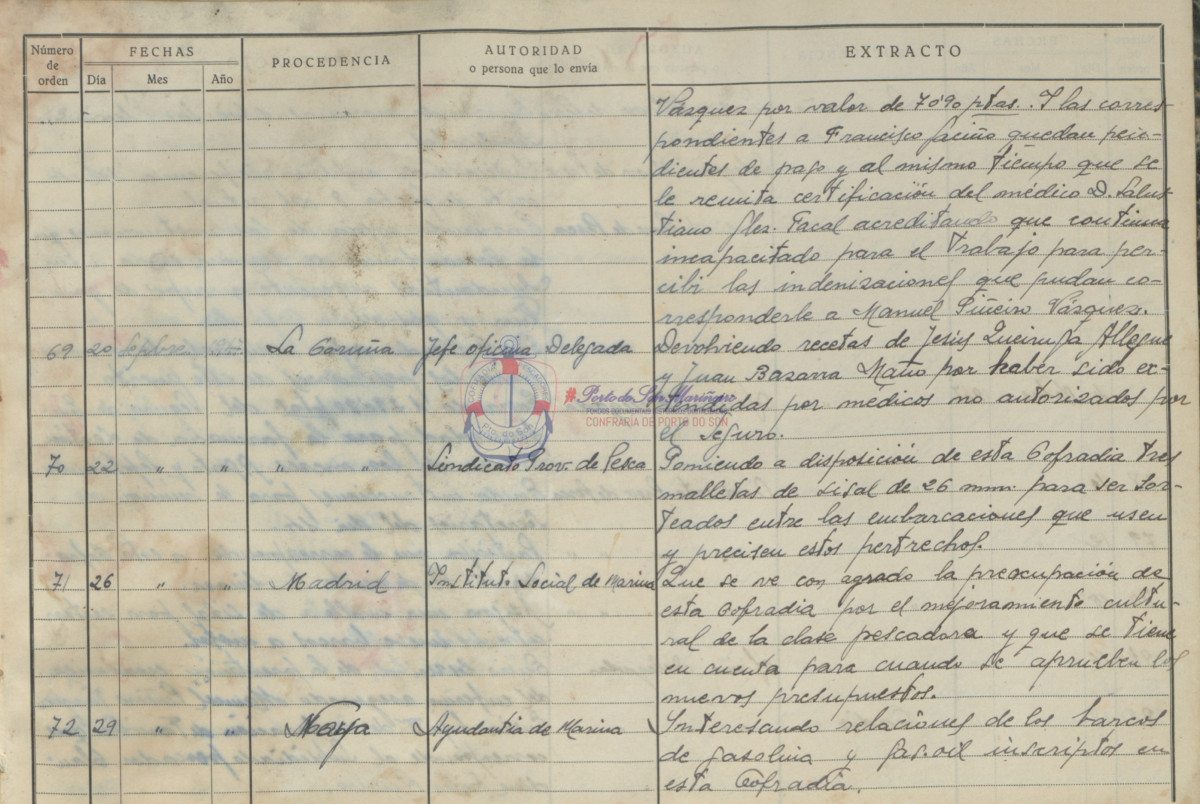 Número de orden
FECHAS
Día Mes Año
PROCEDENCIA
AUTORIDAD
o persona que lo envía
EXTRACTO
Vázquez por valor de 70'90 ptas. Y las corres-
pondientes a Francisco quedan pen-
dientes de pago y al mismo tiempo que se
le remita certificación del médico D. Salus-
tiano Glez. Facal acreditando que continua
incapacitado para el trabajo para per-
cibi las indenizaciones que pudan co-
rresponderle a Manuel Piñeiro Vázquez.
69 20 Septbre. La Coruña Jefe oficina Delegada Devolviendo recetas de Jesús Queiruga Allegue
y Juan Bazarra Mato por haber sido ex-
tendidas por médicos no autorizados por
el seguro.
70 22 " " " " Sindicato Prov. de Pesca Poniendo a disposición de esta Cofradia tres
malletas de sisal de 26 mm. para ser sor-
teados entre las embarcaciones que usen
y precisen estos pertrechos.
71 26 " " Madrid Instituto Social de Marina Que se ve con agrado la preocupación de
esta Cofradia por el mejoramiento cultu-
ral de la clase pescadora y que se tiene
en cuenta para cuando se aprueben los
nuevos presupuestos.
72 29 " " Noya Ayudantia de Marina Interesando relaciones de los barcos
de gasolina y gasoil inscriptos en
esta Cofradia.
#Porto do Son Mariñeiro
CONFRARÍA DE PORTO DO SON